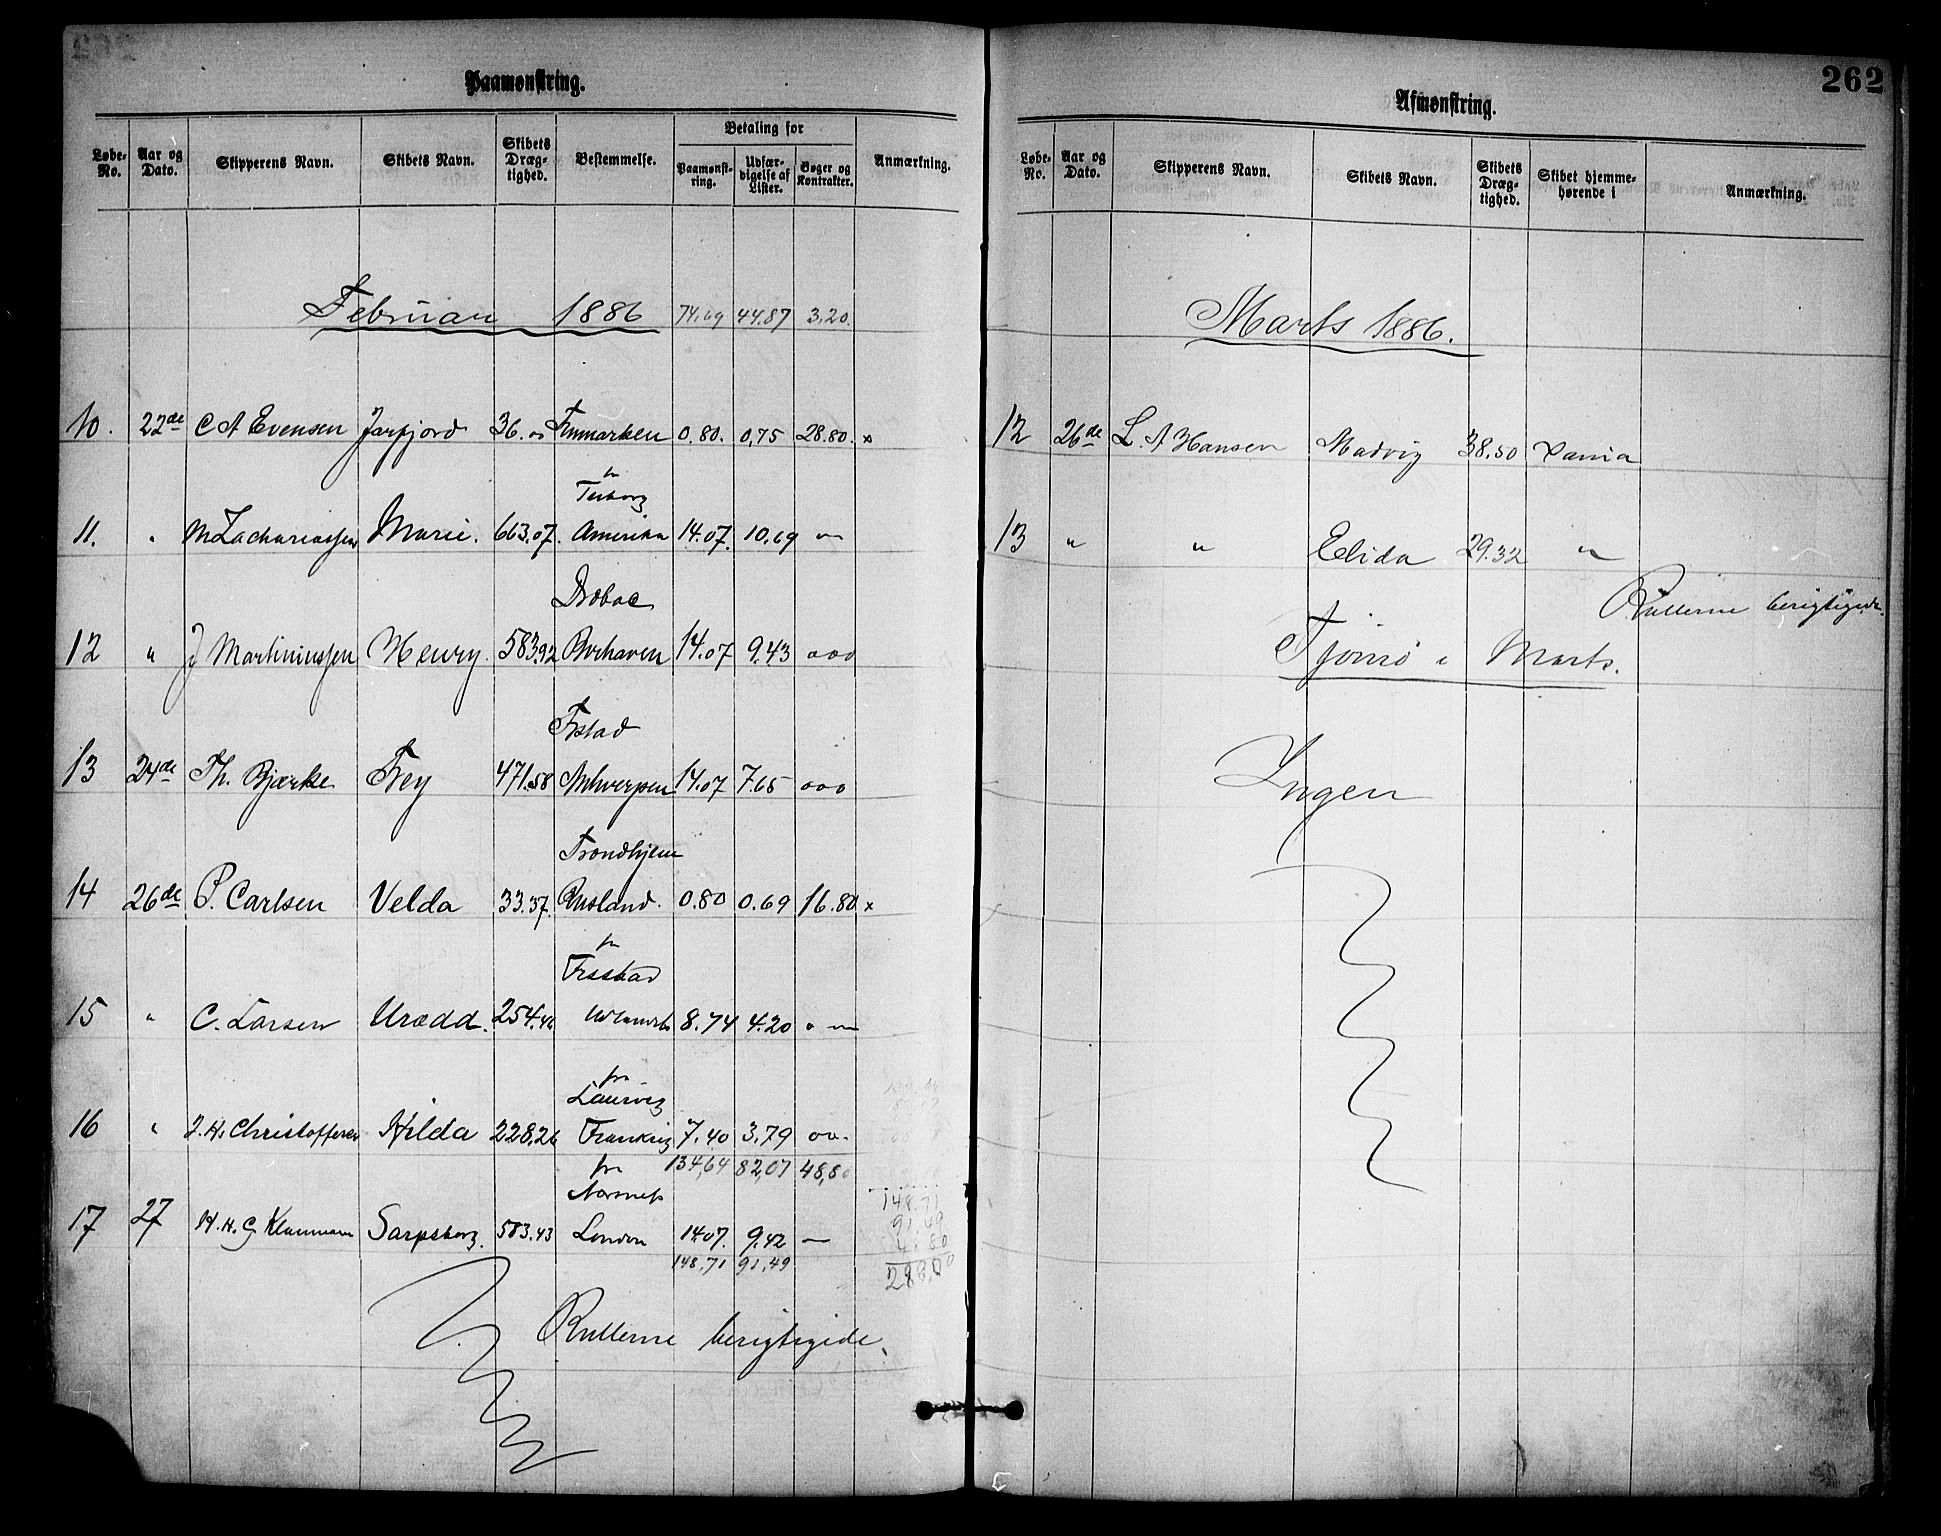 Paamønstring.
Løbe-No. Aar og Dato. Skipperens Navn. Skibets Navn. Skibets Dræg-tighed. Bestemmelse. Betaling for Paamønst-ring. Udfær-digelse af Lister. Bøger og Kontrakter. Anmærkning.
Februar 1886 74,69 44.87 3,20
10. 22de C A Evensen Jarfjord 36. Finmarken 0.80. 0,75 28.80. x
11. " M Zachariassen Marie. 663.07. Amerika 14.07. 10.69
Drøbac
12 " J Martiniussen Henry. 583.92 14.07 9.43 ooo
Frstad
13 24de Th. Bjærke Frey 471.58 Antwerpen 14.07 7.65 ooo
Trondhjem
14 26de P. Carlsen Velda 33.37. Rusland. 0.80 0.69 16.80. x
fr
Frsstad
15 " C. Larsen Urædd. 254.46 8.74 4.20
fr
Laurvig
16 " J. H. Christoffersen Hilda 228,26 Frankrig 7.40 3,79 oo.
134,64 82,07 48,80
fr
148.71
91.49
17 27 H. H. G Klaumann Sarpsborg. 583.43 London 14.07. 9.42 —
148,71 91,49
Rullerne berigtigede.
262
Afmønstring.
Løbe-No. Aar og Dato. Skipperens Navn. Skibets Navn. Skibets Dræg-tighed. Skibet hjemme-hørende i Anmærkning.
Marts 1886.
12 26de L. A Hansen Madvig 38.50 Dania
13 " " Elida 29.32 "
Rullerne berigtigede.
Tjømø i Marts.
Ingen